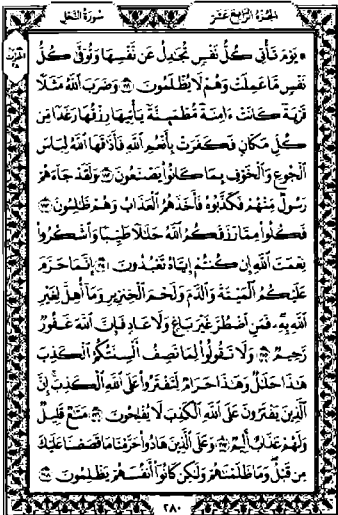 الجزء الرابع عشر
سورة النحل
۞ يوم تأتي كل نفس تجادل عن نفسها وتوفى كل
نفس ما عملت وهم لا يظلمون ١١١ وضرب الله مثلا
قرية كانت ءامنة مطمئنة يأتيها رزقها رغدا من
كل مكان فكفرت بأنعم الله فأذاقها الله لباس
الجوع والخوف بما كانوا يصنعون ١١٢ ولقد جاءهم
رسول منهم فكذبوه فأخذهم العذاب وهم ظالمون ١١٣
فكلوا مما رزقكم الله حلالا طيبا واشكروا
نعمت الله إن كنتم إياه تعبدون ١١٤ إنما حرم
عليكم الميتة والدم ولحم الخنزير وما أهل لغير
الله به فمن اضطر غير باغ ولا عاد فإن الله غفور
رحيم ١١٥ ولا تقولوا لما تصف ألسنتكم الكذب
هذا حلال وهذا حرام لتفتروا على الله الكذب إن
الذين يفترون على الله الكذب لا يفلحون ١١٦ متاع قليل
ولهم عذاب أليم ١١٧ وعلى الذين هادوا حرمنا ما قصصنا عليك
من قبل وما ظلمناهم ولكن كانوا أنفسهم يظلمون ١١٨
٢٨٠